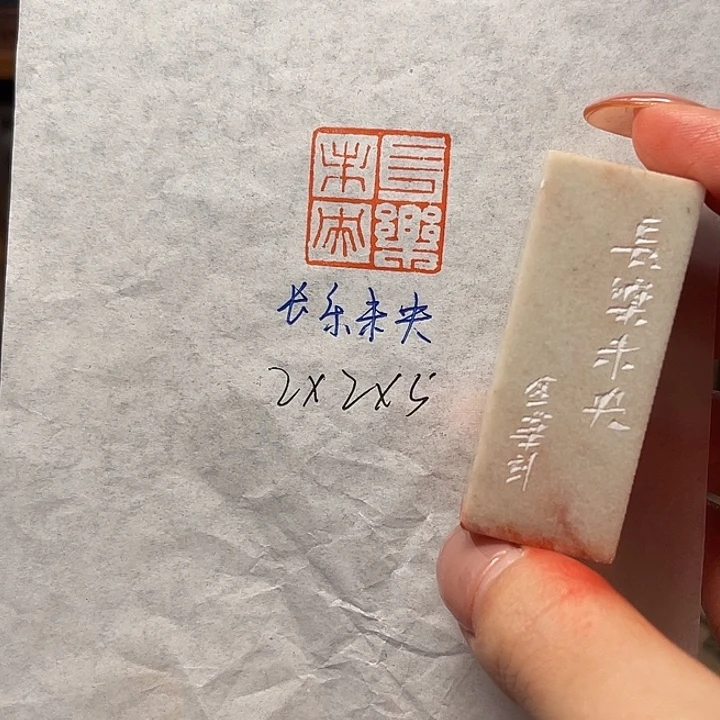 長樂未央
长乐未央
2X2X5
長樂未央